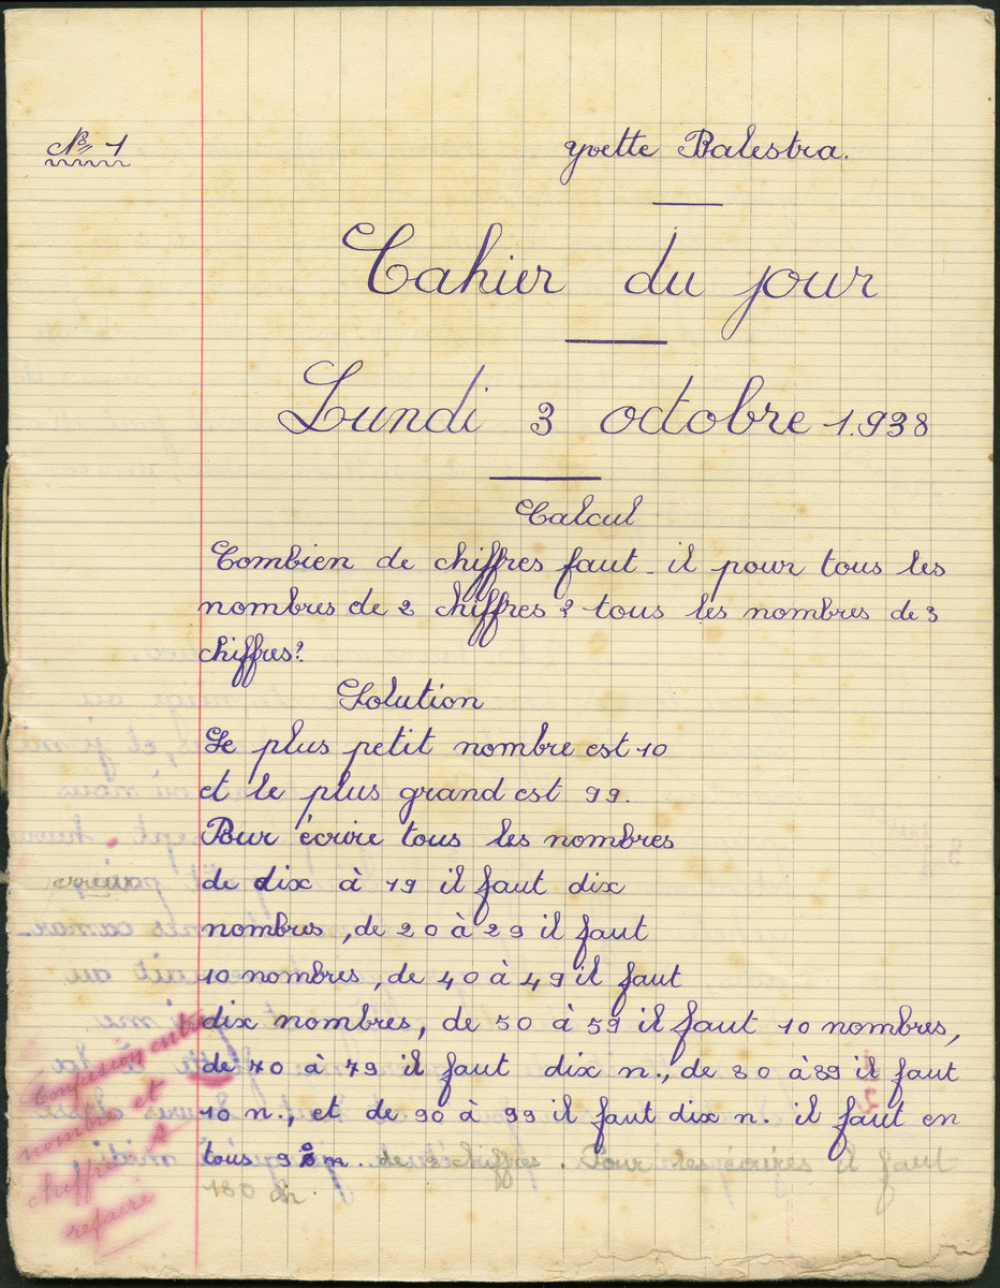 N° 1
Yvette Balestra.
Cahier du jour
Lundi 3 octobre 1.938
Calcul
Combien de chiffres faut-il pour tous les
nombres de 2 chiffres ? tous les nombres de 3
chiffres?
Solution
Le plus petit nombre est 10
et le plus grand est 99.
Pour écrire tous les nombres
de dix à 19 il faut dix
nombres, de 20 à 29 il faut
10 nombres, de 40 à 49 il faut
dix nombres, de 50 à 59 il faut 10 nombres,
de 70 à 79 il faut dix n., de 80 à 89 il faut
10 n., et de 90 à 99 il faut dix n. il faut en
tous 90 n. de 2 chiffres. Pour les écrires il faut
180 ch.
Confusion entre
nombre et
chiffre A
refaire